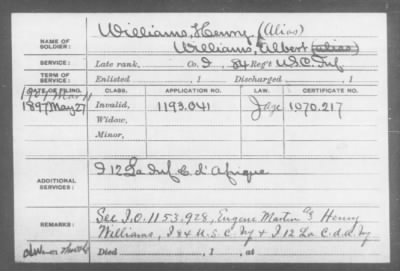 NAME OF SOLDIER:
Williams, Henry (Alias)
Williams, Albert (alias)
SERVICE:
Late rank, Co. I, 84 Reg't U.S.C. Inf
TERM OF SERVICE:
Enlisted , 1 Discharged , 1
DATE OF FILING. CLASS. APPLICATION NO. LAW. CERTIFICATE NO.
1897 May 27 Invalid, 1193.041 1070.217
Widow,
Minor,
ADDITIONAL SERVICES:
I 12 La Inf C. d'Afrique
REMARKS:
See I.O. 1153.928, Eugene Martin Henry
Williams, I 84 U.S.C. Inf & I 12 La C.d.A. Inf
Died , 1 , at